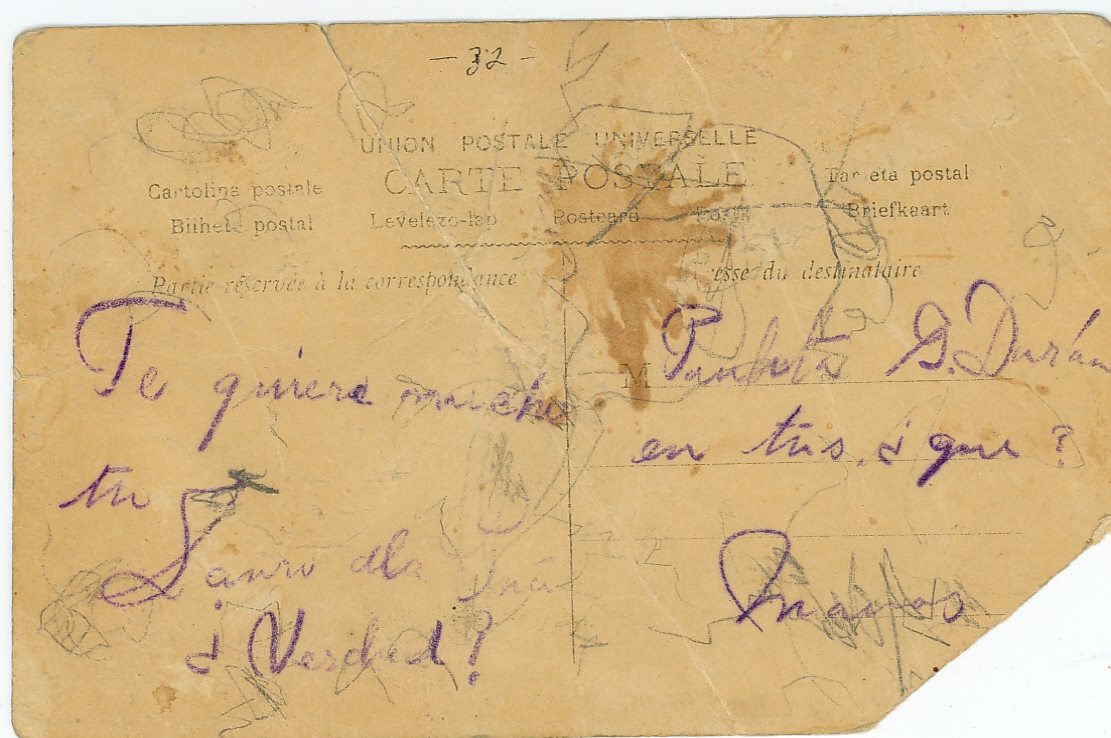 - 32 -
UNION POSTALE UNIVERSELLE
CARTE POSTALE
Cartolina postale
Tarjeta postal
Bilhete postal Levelezo-lap Postcard Briefkaart
Partie réservée à la correspondance
esse du destinataire
Te quiere mucho
tu
¿ Verdad?
M
G. Durán
en tus, ¿ que?
Manos